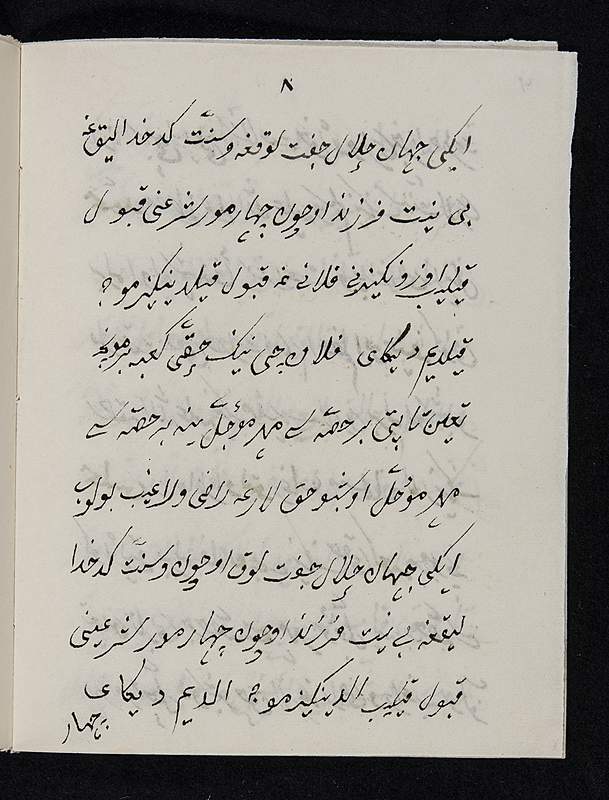 ٨
ایکی جهان حلال جفت لوقغه و سنّت کدخدالیقغه
بی نیت فرزند اوچون چهار مور شرعنی قبول
قیلیب اوزونکیزنی فلانی غه قبول قیلدینکیزمو ؟
قیلدیم دیکای فلان چی نینک حقّی کعبه
تعین تاپتی بر حصّه سے مهر مؤجّل ینه بر حصّه سے
مهر موجّل اوشبو حق لارغه راضی ولاغیب بولوب
ایکی جهان حلال جفت لوق اوچون و سنّت کدخدا
لیقغه بے نیت فرزند اوچون چهار مور شرعینی
قبول قیلیب الدینکیزمو ؟ الدیم دیکای
چهار